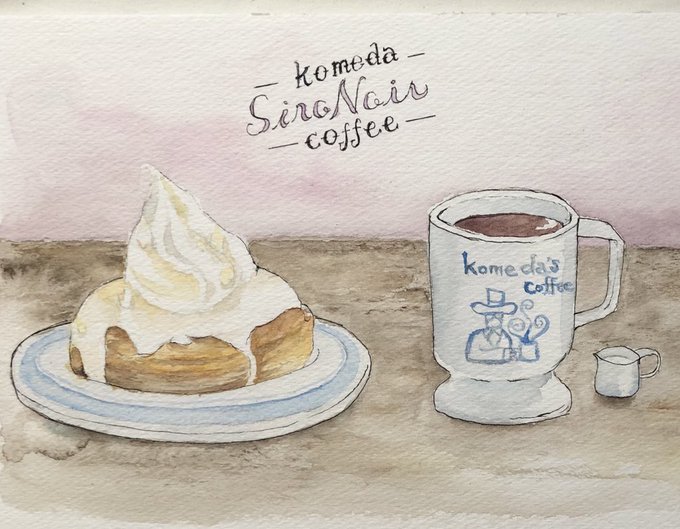 komeda
SiroNoir
coffee
komeda's
coffee